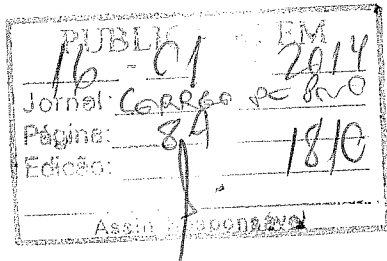 PUBLIC EM
16 - 01 2014
Jornal: CORREIO DO POVO
Página: 8A
Edição: 1810
Assin Responsável